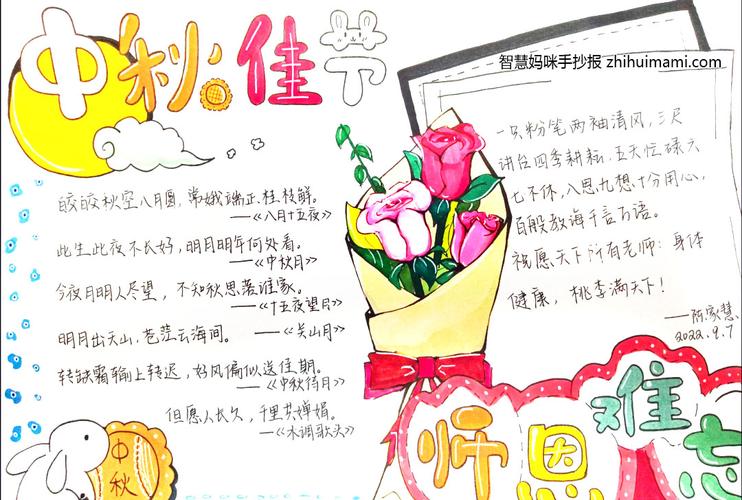 中秋佳节
智慧妈咪手抄报 zhihuimami.com
皎皎秋空八月圆，常娥端正桂枝鲜。
——《八月十五夜》
此生此夜不长好，明月明年何处看。
——《中秋月》
今夜月明人尽望，不知秋思落谁家。
——《十五夜望月》
明月出天山，苍茫云海间。
——《关山月》
转缺霜输上转迟，好风偏似送佳期。
——《中秋待月》
但愿人长久，千里共婵娟。
——《水调歌头》
中秋
一只粉笔两袖清风，三尺
讲台四季耕耘，五天忙碌六
七不休，八思九想十分用心，
百般教诲千言万语。
祝愿天下所有老师：身体
健康，桃李满天下！
2022.9.7
师恩难忘